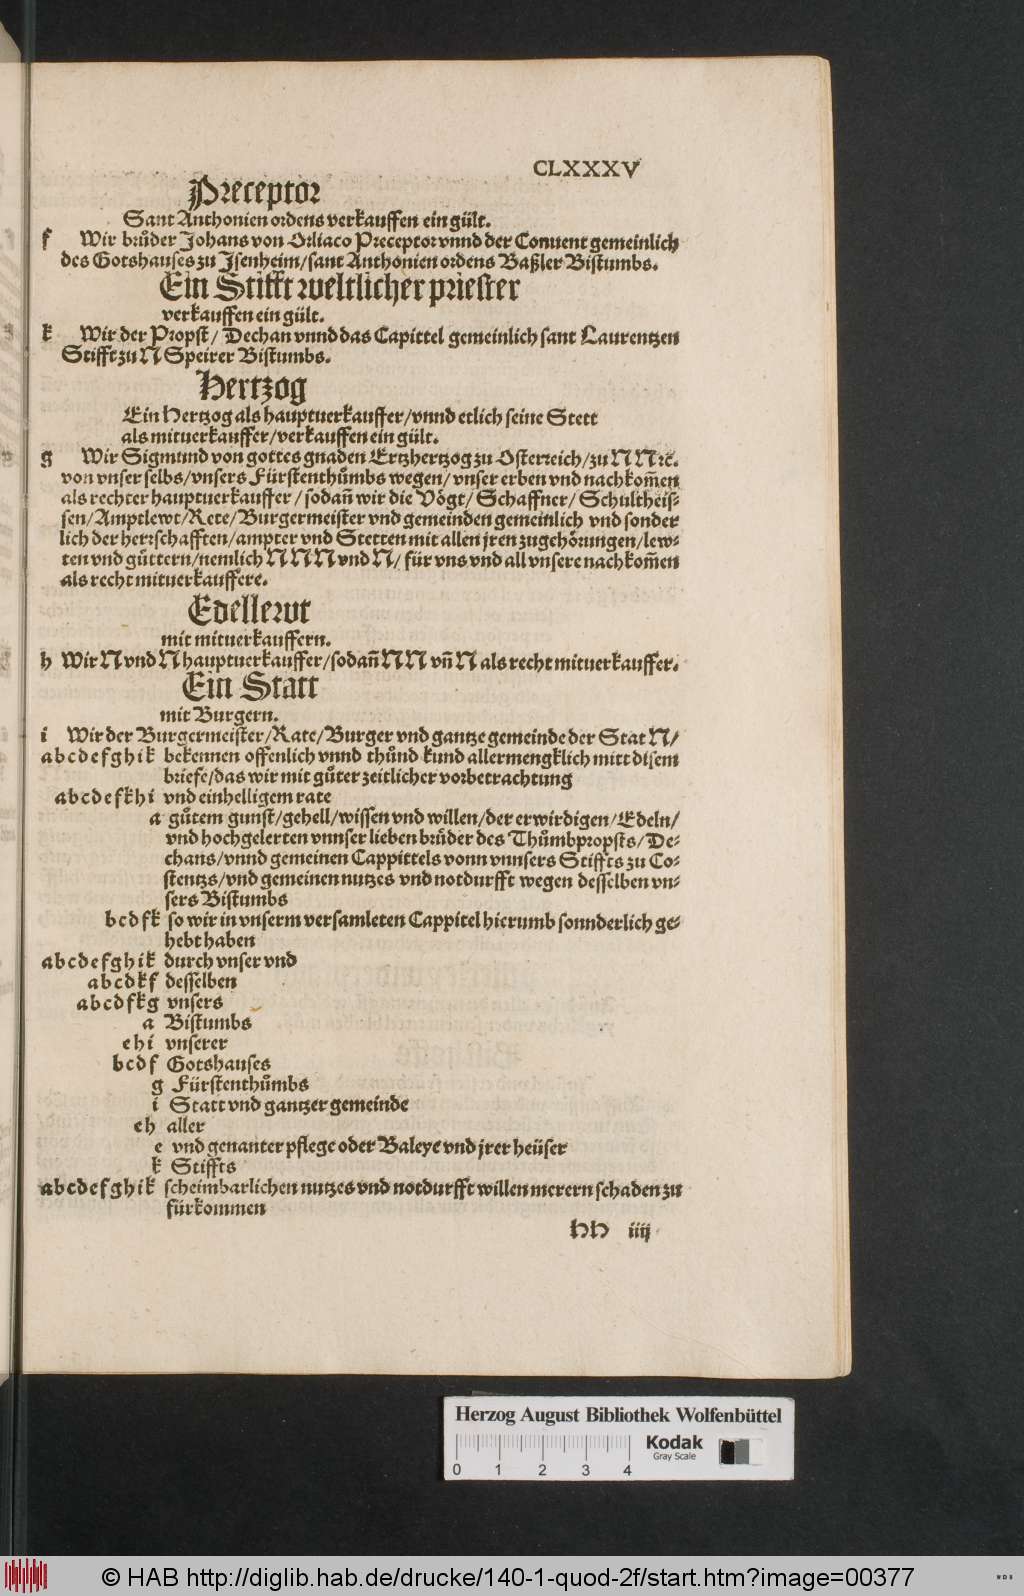 CLXXXV
Preceptor
Sant Anthonien ordens verkauffen ein gült.
f Wir brůder Johans von Orliaco Preceptor vnnd der Conuent gemeinlich
des Gotshauses zu Jsenheim/sant Anthonien ordens Baßler Bistumbs.
Ein Stifft weltlicher priester
verkauffen ein gült.
k Wir der Propst/ Dechan vnnd das Capittel gemeinlich sant Laurentzen
Stifft zu N Speirer Bistumbs.
Hertzog
Ein Hertzog als hauptuerkauffer/vnnd etlich seine Stett
als mituerkauffer/verkauffen ein gült.
g Wir Sigmund von gottes gnaden Ertzhertzog zu Osterreich/zu N N ꝛc.
von vnser selbs/vnsers Fürstenthůmbs wegen/ vnser erben vnd nachkom̃en
als rechter hauptuerkauffer/sodañ wir die Vögt/ Schaffner/ Schultheis-
sen/Amptlewt/Rete/Burgermeister vnd gemeinden gemeinlich vnd sonder
lich der herrschafften/ampter vnd Stetten mit allen jren zugehörungen/lew-
ten vnd gůttern/nemlich N N N vnd N/ für vns vnd all vnsere nachkom̃en
als recht mituerkauffere.
Edellewt
mit mituerkauffern.
h Wir N vnd N hauptuerkauffer/sodañ N N vñ N als recht mituerkauffer.
Ein Statt
mit Burgern.
i Wir der Burgermeister/Rate/Burger vnd gantze gemeinde der Stat N/
a b c d e f g h i k bekennen offenlich vnnd thůnd kund allermengklich mitt disem
briefe/das wir mit gůter zeitlicher vorbetrachtung
a b c d e f k h i vnd einhelligem rate
a gůtem gunst/gehell/wissen vnd willen/der erwirdigen/Edeln/
vnd hochgelerten vnnser lieben brůder des Thůmbpropsts/De-
chans/vnnd gemeinen Cappittels vonn vnnsers Stiffts zu Co-
stentzs/vnd gemeinen nutzes vnd notdurfft wegen desselben vn-
sers Bistumbs
b c d f k so wir in vnserm versamleten Cappitel hierumb sonnderlich ge-
hebt haben
a b c d e f g h i k durch vnser vnd
a b c d k f desselben
a b c d f k g vnsers
a Bistumbs
e h i vnserer
b c d f Gotshauses
g Fürstenthůmbs
i Statt vnd gantzer gemeinde
e h aller
e vnd genanter pflege oder Baleye vnd jrer heüser
k Stiffts
a b c d e f g h i k scheimbarlichen nutzes vnd notdurfft willen merern schaden zu
fürkommen
hh iiij
Herzog August Bibliothek Wolfenbüttel
Kodak
Gray Scale
0 1 2 3 4
© HAB http://diglib.hab.de/drucke/140-1-quod-2f/start.htm?image=00377